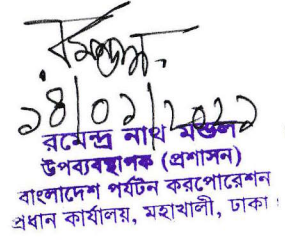 ১৪/০১/২০২১
রমেন্দ্র নাথ মন্ডল
উপব্যবস্থাপক (প্রশাসন)
বাংলাদেশ পর্যটন করপোরেশন
প্রধান কার্যালয়, মহাখালী, ঢাকা।